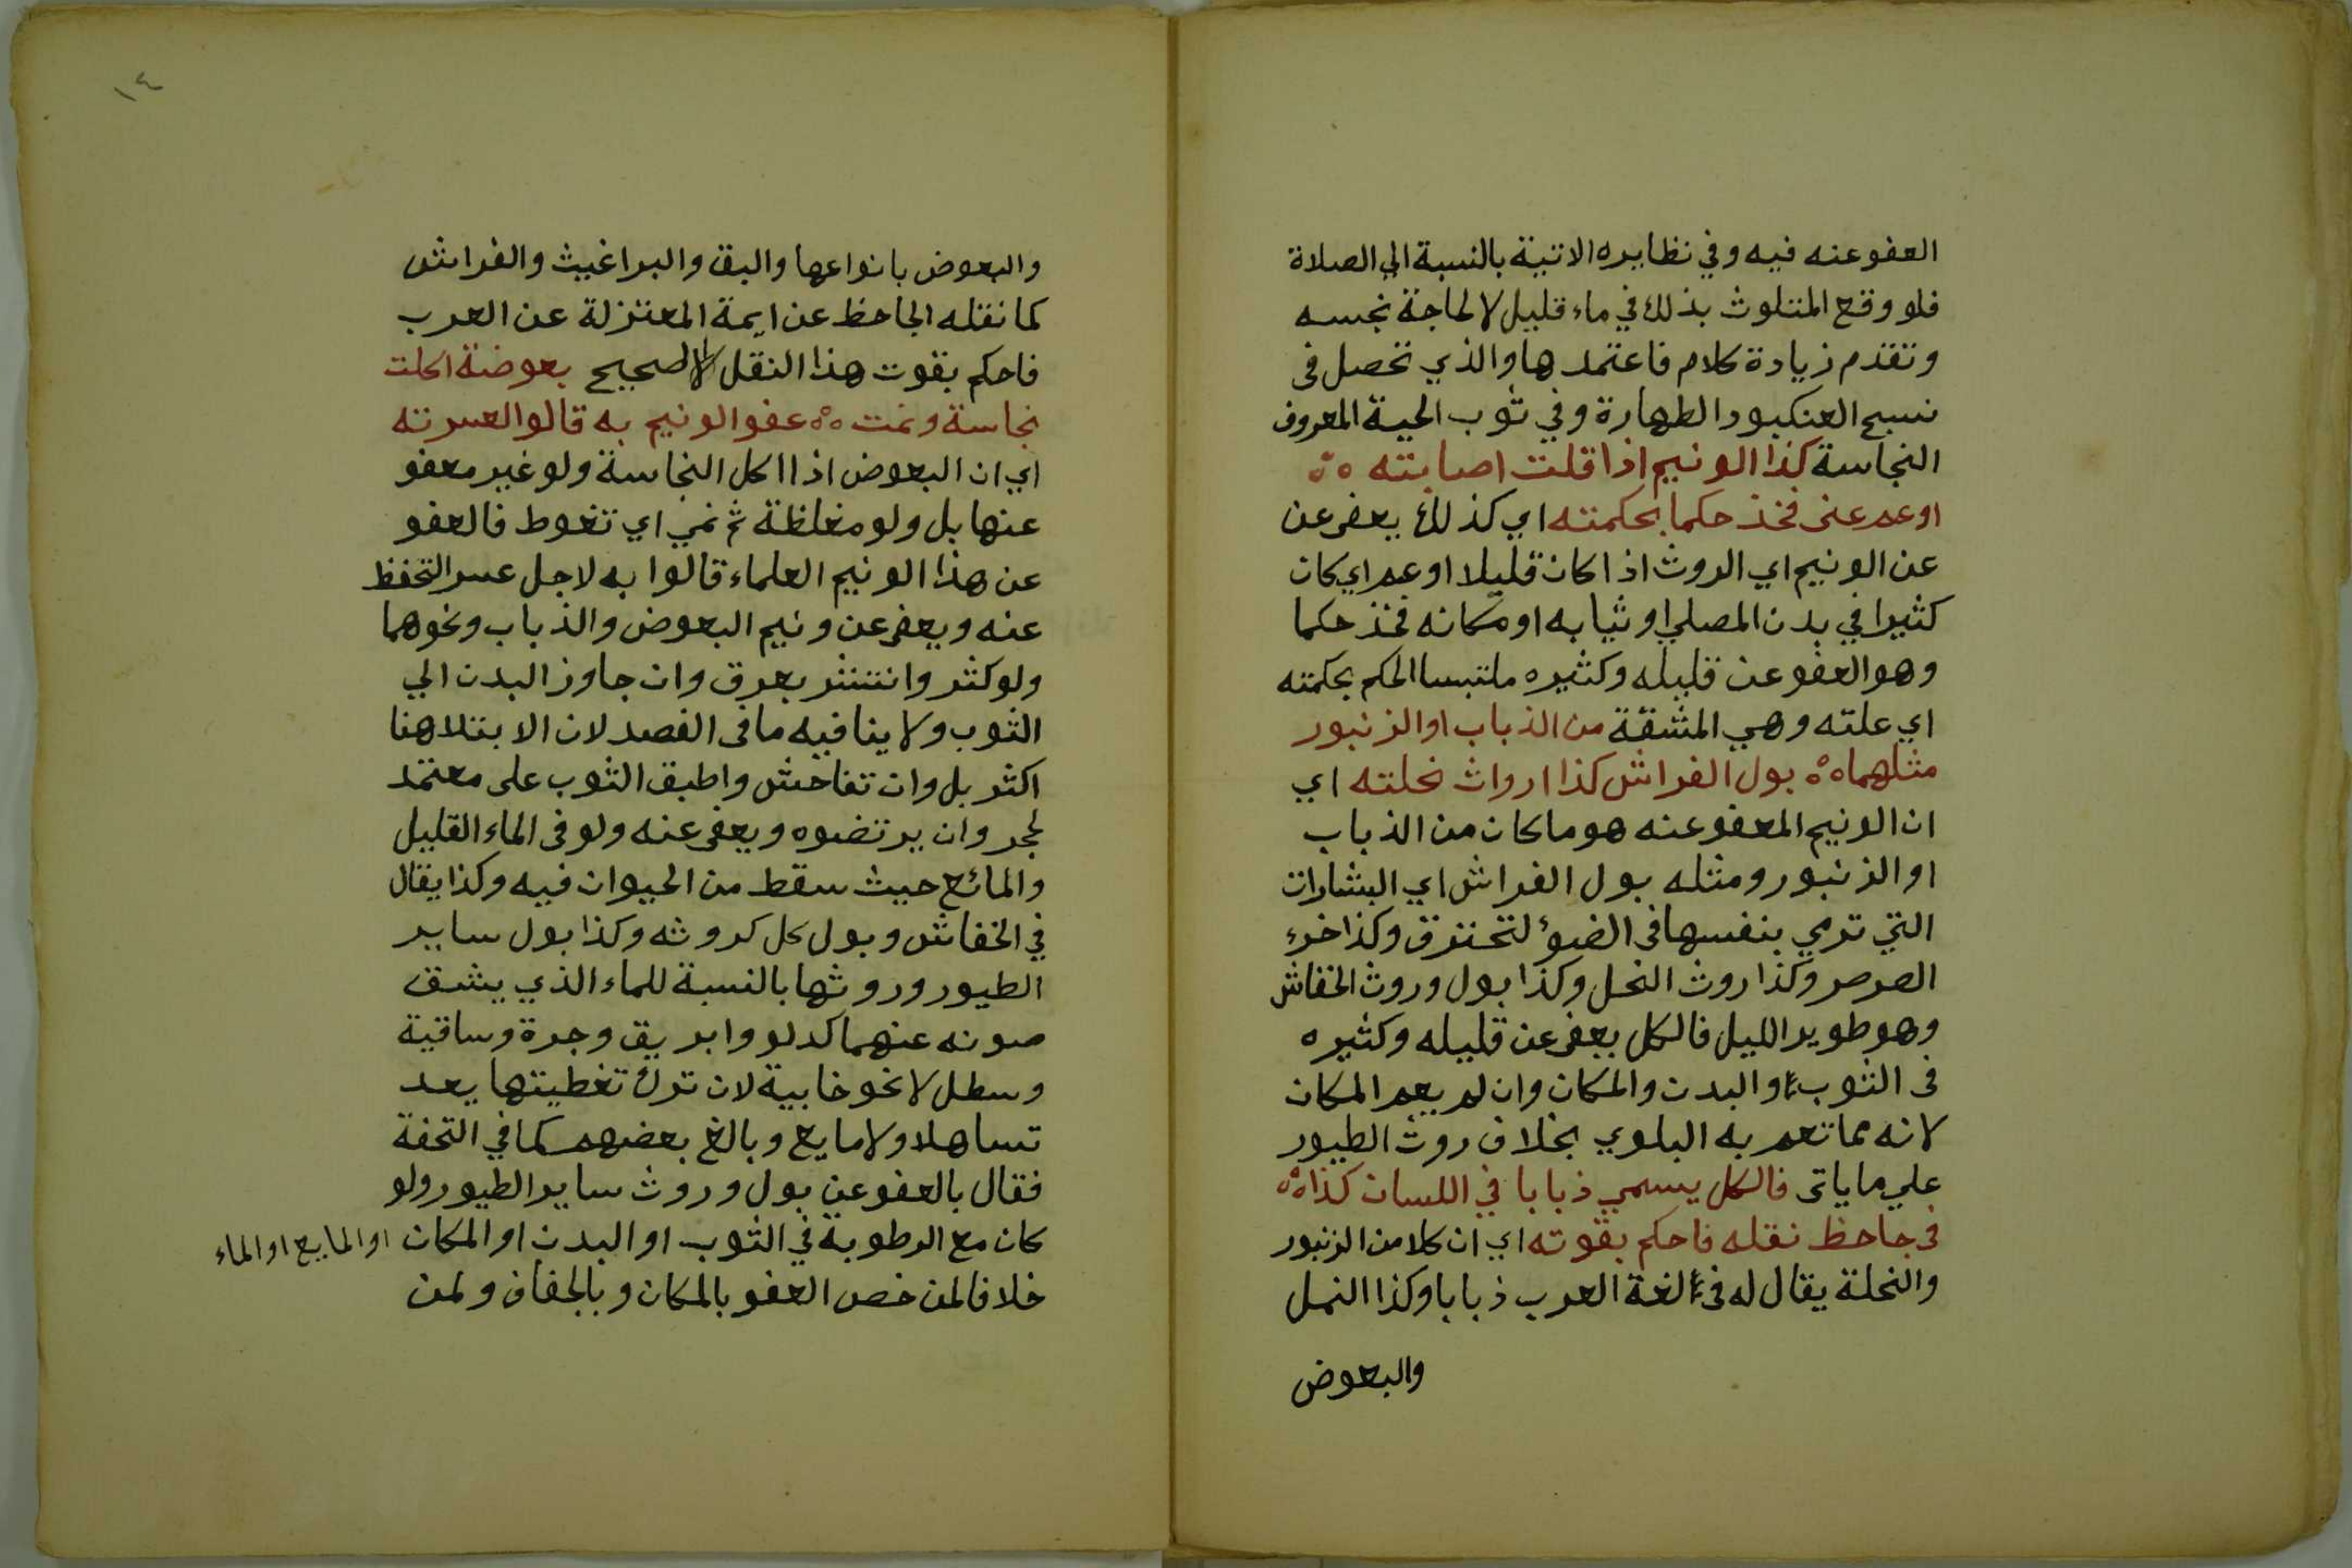 العفو عنه فيه وفي نظايره الاتية بالنسبة الي الصلاة
فلو وقع المتلوث بذلك في ماء قليل لا لحاجة نجسه
وتقدم زيادة كلام فاعتمدها والذي تحصل فى
نسج العنكبود الطهارة وفي ثوب الحية المعروف
النجاسة كذا الونيم اذا قلت اصابته ٥٥
او عم عنى فخذ حكما بحكمته اي كذلك يعفى عن
عن الونيم اي الروث اذا كان قليلا او عم اي كان
كثيرا في بدن المصلي او ثيابه او مكانه فخذ حكما
وهو العفو عن قليله وكثيره ملتبسا الحكم بحكمته
اي علته وهي المشقة من الذباب او الزنبور
مثلهما ٥٥ بول الفراش كذا ارواث نحلته اي
ان الونيم المعفو عنه هو ما كان من الذباب
او الزنبور ومثله بول الفراش اي البشارات
التي ترمي بنفسها فى الضوء لتحترق وكذا خرء
الصرصر وكذا روث النحل وكذا بول وروث الخفاش
وهو طوير الليل فالكل يعفى عن قليله وكثيره
فى الثوب او البدن والمكان وان لم يعم المكان
لانه مما تعم به البلوي بخلاف روث الطيور
علي ما ياتى فالكل يسمي ذبابا في اللسان كذا ٥٥
فى جاحظ نقله فاحكم بقوته اي ان كلا من الزنبور
والنحلة يقال له فى لغة العرب ذبابا وكذا النمل
والبعوض
١٤
والبعوض بانواعها والبق والبراغيث والفراش
كما نقله الجاحظ عن ايمة المعتزلة عن العرب
فاحكم بقوت هذا النقل الصحيح بعوضة اكلت
نجاسة ونمت ٥٥ عفو الونيم به قالوا لعسرته
اي ان البعوض اذا اكل النجاسة ولو غير معفو
عنها بل ولو مغلظة ثم نمي اي تغوط فالعفو
عن هذا الونيم العلماء قالوا به لاجل عسر التحفظ
عنه ويعفى عن ونيم البعوض والذباب ونحوهما
ولو كثر وانتشر بعرق وان جاوز البدن الي
الثوب ولا ينافيه ما فى الفصد لان الابتلا هنا
اكثر بل وان تفاحش واطبق الثوب على معتمد
لجر وان يرتضوه ويعفى عنه ولو فى الماء القليل
والمائع حيث سقط من الحيوان فيه وكذا يقال
في الخفاش وبول كل كروثه وكذا بول ساير
الطيور وروثها بالنسبة للماء الذي يشق
صونه عنهما كدلو وابريق وجرة وساقية
وسطل لا نحو خابية لان ترك تغطيتها يعد
تساهلا ولا مايع وبالغ بعضهم كما في التحفة
فقال بالعفو عن بول وروث ساير الطيور ولو
كان مع الرطوبة في الثوب او البدن او المكان او المايع او الماء
خلافا لمن خص العفو بالمكان وبالجفاف ولمن